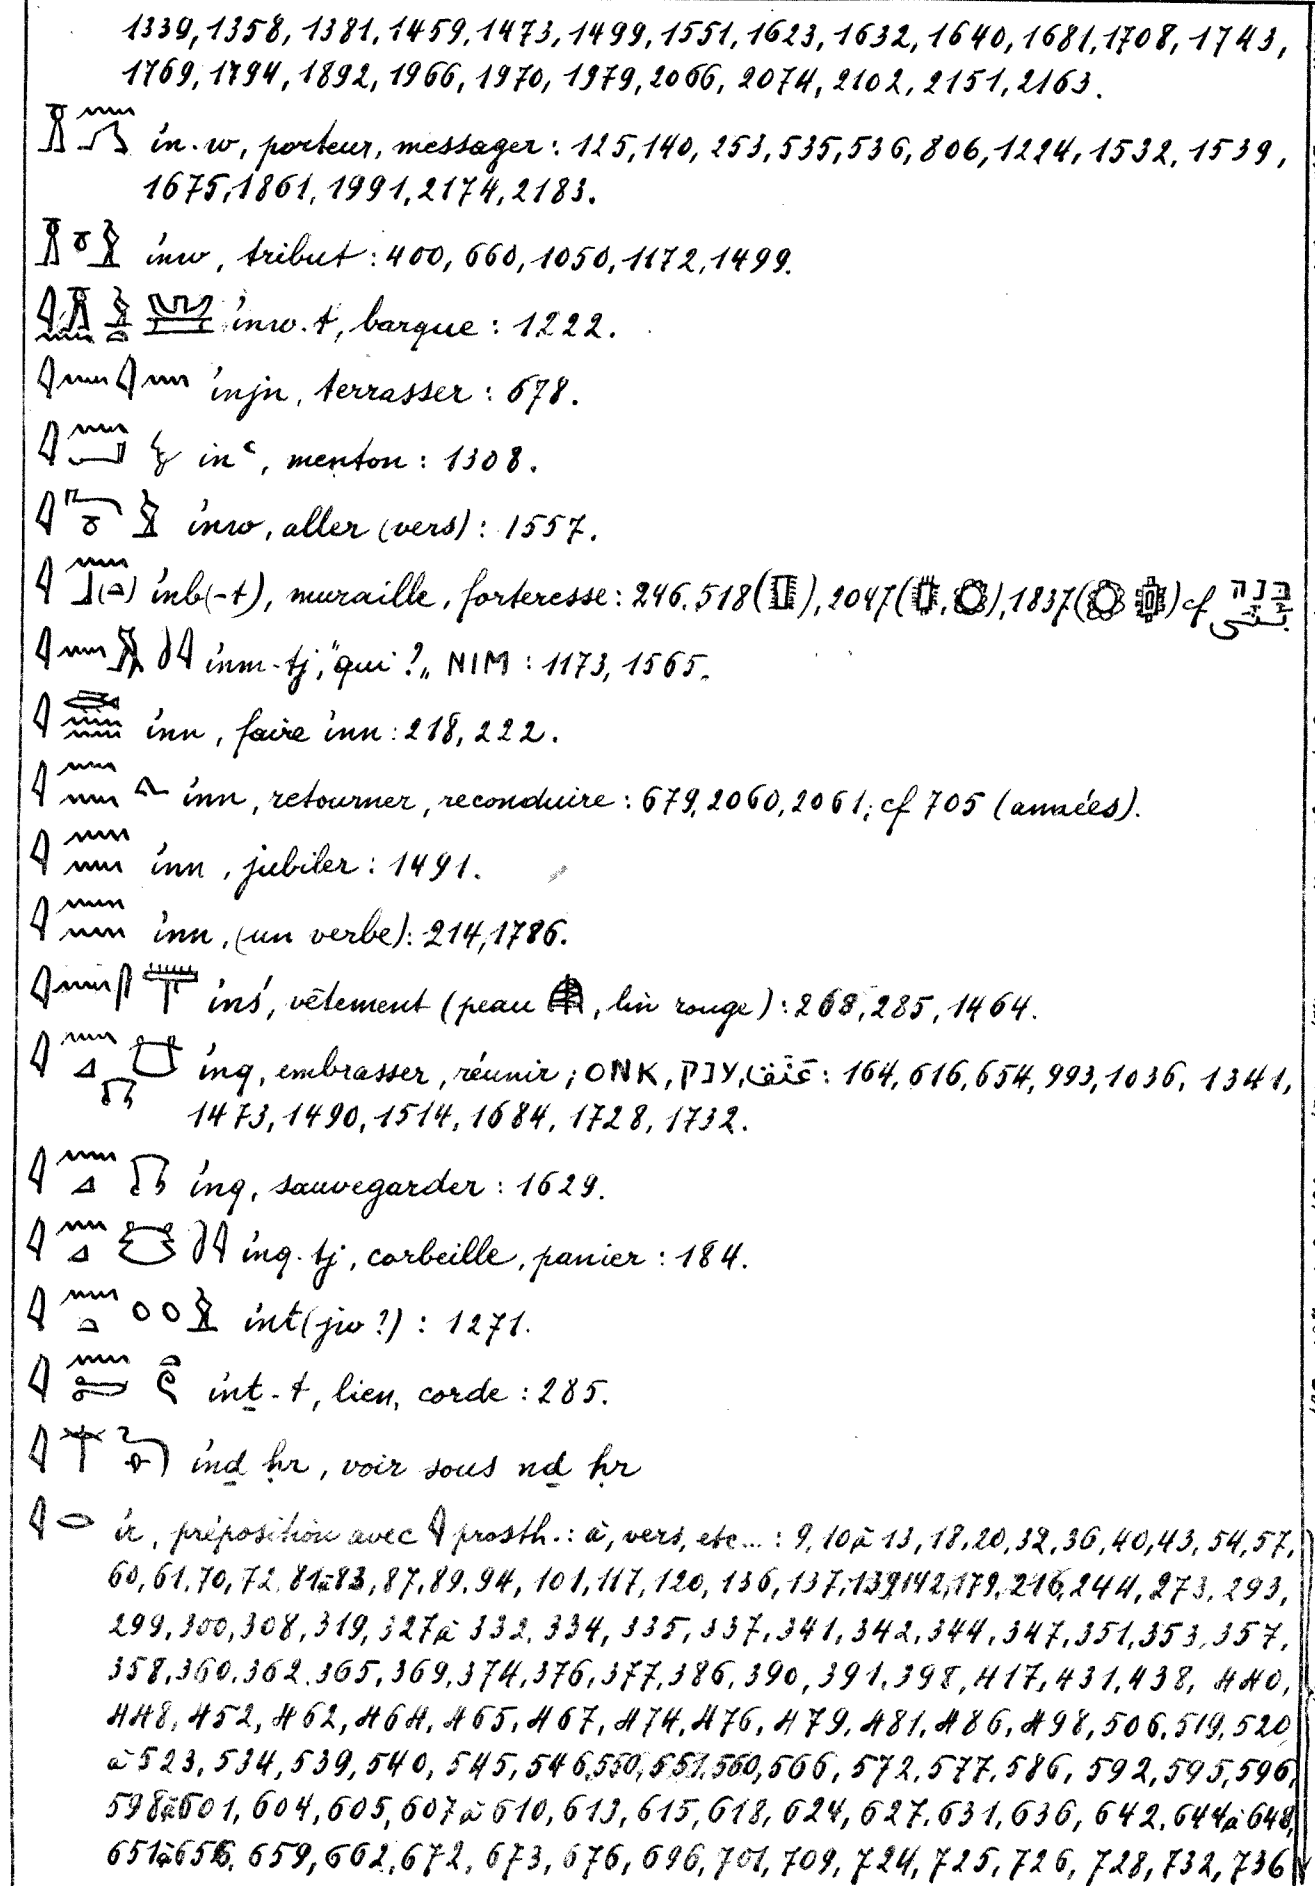 1339, 1358, 1381, 1459, 1473, 1499, 1551, 1623, 1632, 1640, 1681, 1708, 1743,
1769, 1794, 1892, 1966, 1970, 1979, 2066, 2074, 2102, 2151, 2163.
in.w, porteur, messager : 125, 140, 253, 535, 536, 806, 1224, 1532, 1539,
1675, 1861, 1991, 2174, 2183.
inw, tribut : 400, 660, 1050, 1172, 1499.
inw.t, barque : 1222.
injn, terrasser : 678.
inꜥ, menton : 1308.
inw, aller (vers) : 1557.
inb(-t), muraille, forteresse : 246, 518 ( ), 2047 ( , ), 1837 ( ) cf
inm-tj, "qui ?" NIM : 1173, 1565.
inn, faire inn : 218, 222.
inn, retourner, reconduire : 679, 2060, 2061, cf 705 (années).
inn, jubiler : 1491.
inn, (un verbe) : 214, 1786.
inś, vêtement (peau , lin rouge) : 268, 285, 1464.
inq, embrasser, réunir ; ONK, ענק, عنق : 164, 616, 654, 993, 1036, 1341,
1473, 1490, 1514, 1684, 1728, 1732.
inq, sauvegarder : 1629.
inq.tj, corbeille, panier : 184.
int(jw ?) : 1271.
inṯ-t, lien, corde : 285.
inḏ ḥr, voir sous nḏ ḥr
ir, préposition avec prosth. : à, vers, etc... : 9, 10 à 13, 18, 20, 32, 36, 40, 43, 54, 57,
60, 61, 70, 72, 81 à 83, 87, 89, 94, 101, 117, 120, 136, 137, 139, 142, 179, 216, 244, 273, 293,
299, 300, 308, 319, 327 à 332, 334, 335, 337, 341, 342, 344, 347, 351, 353, 357,
358, 360, 362, 365, 369, 374, 376, 377, 386, 390, 391, 398, 417, 431, 438, 440,
448, 452, 462, 464, 465, 467, 474, 476, 479, 481, 486, 498, 506, 519, 520
à 523, 534, 539, 540, 545, 546, 550, 551, 560, 566, 572, 577, 586, 592, 595, 596,
598 à 601, 604, 605, 607 à 610, 613, 615, 618, 624, 627, 631, 636, 642, 644 à 648,
651 à 656, 659, 662, 672, 673, 676, 696, 701, 709, 724, 725, 726, 728, 732, 736